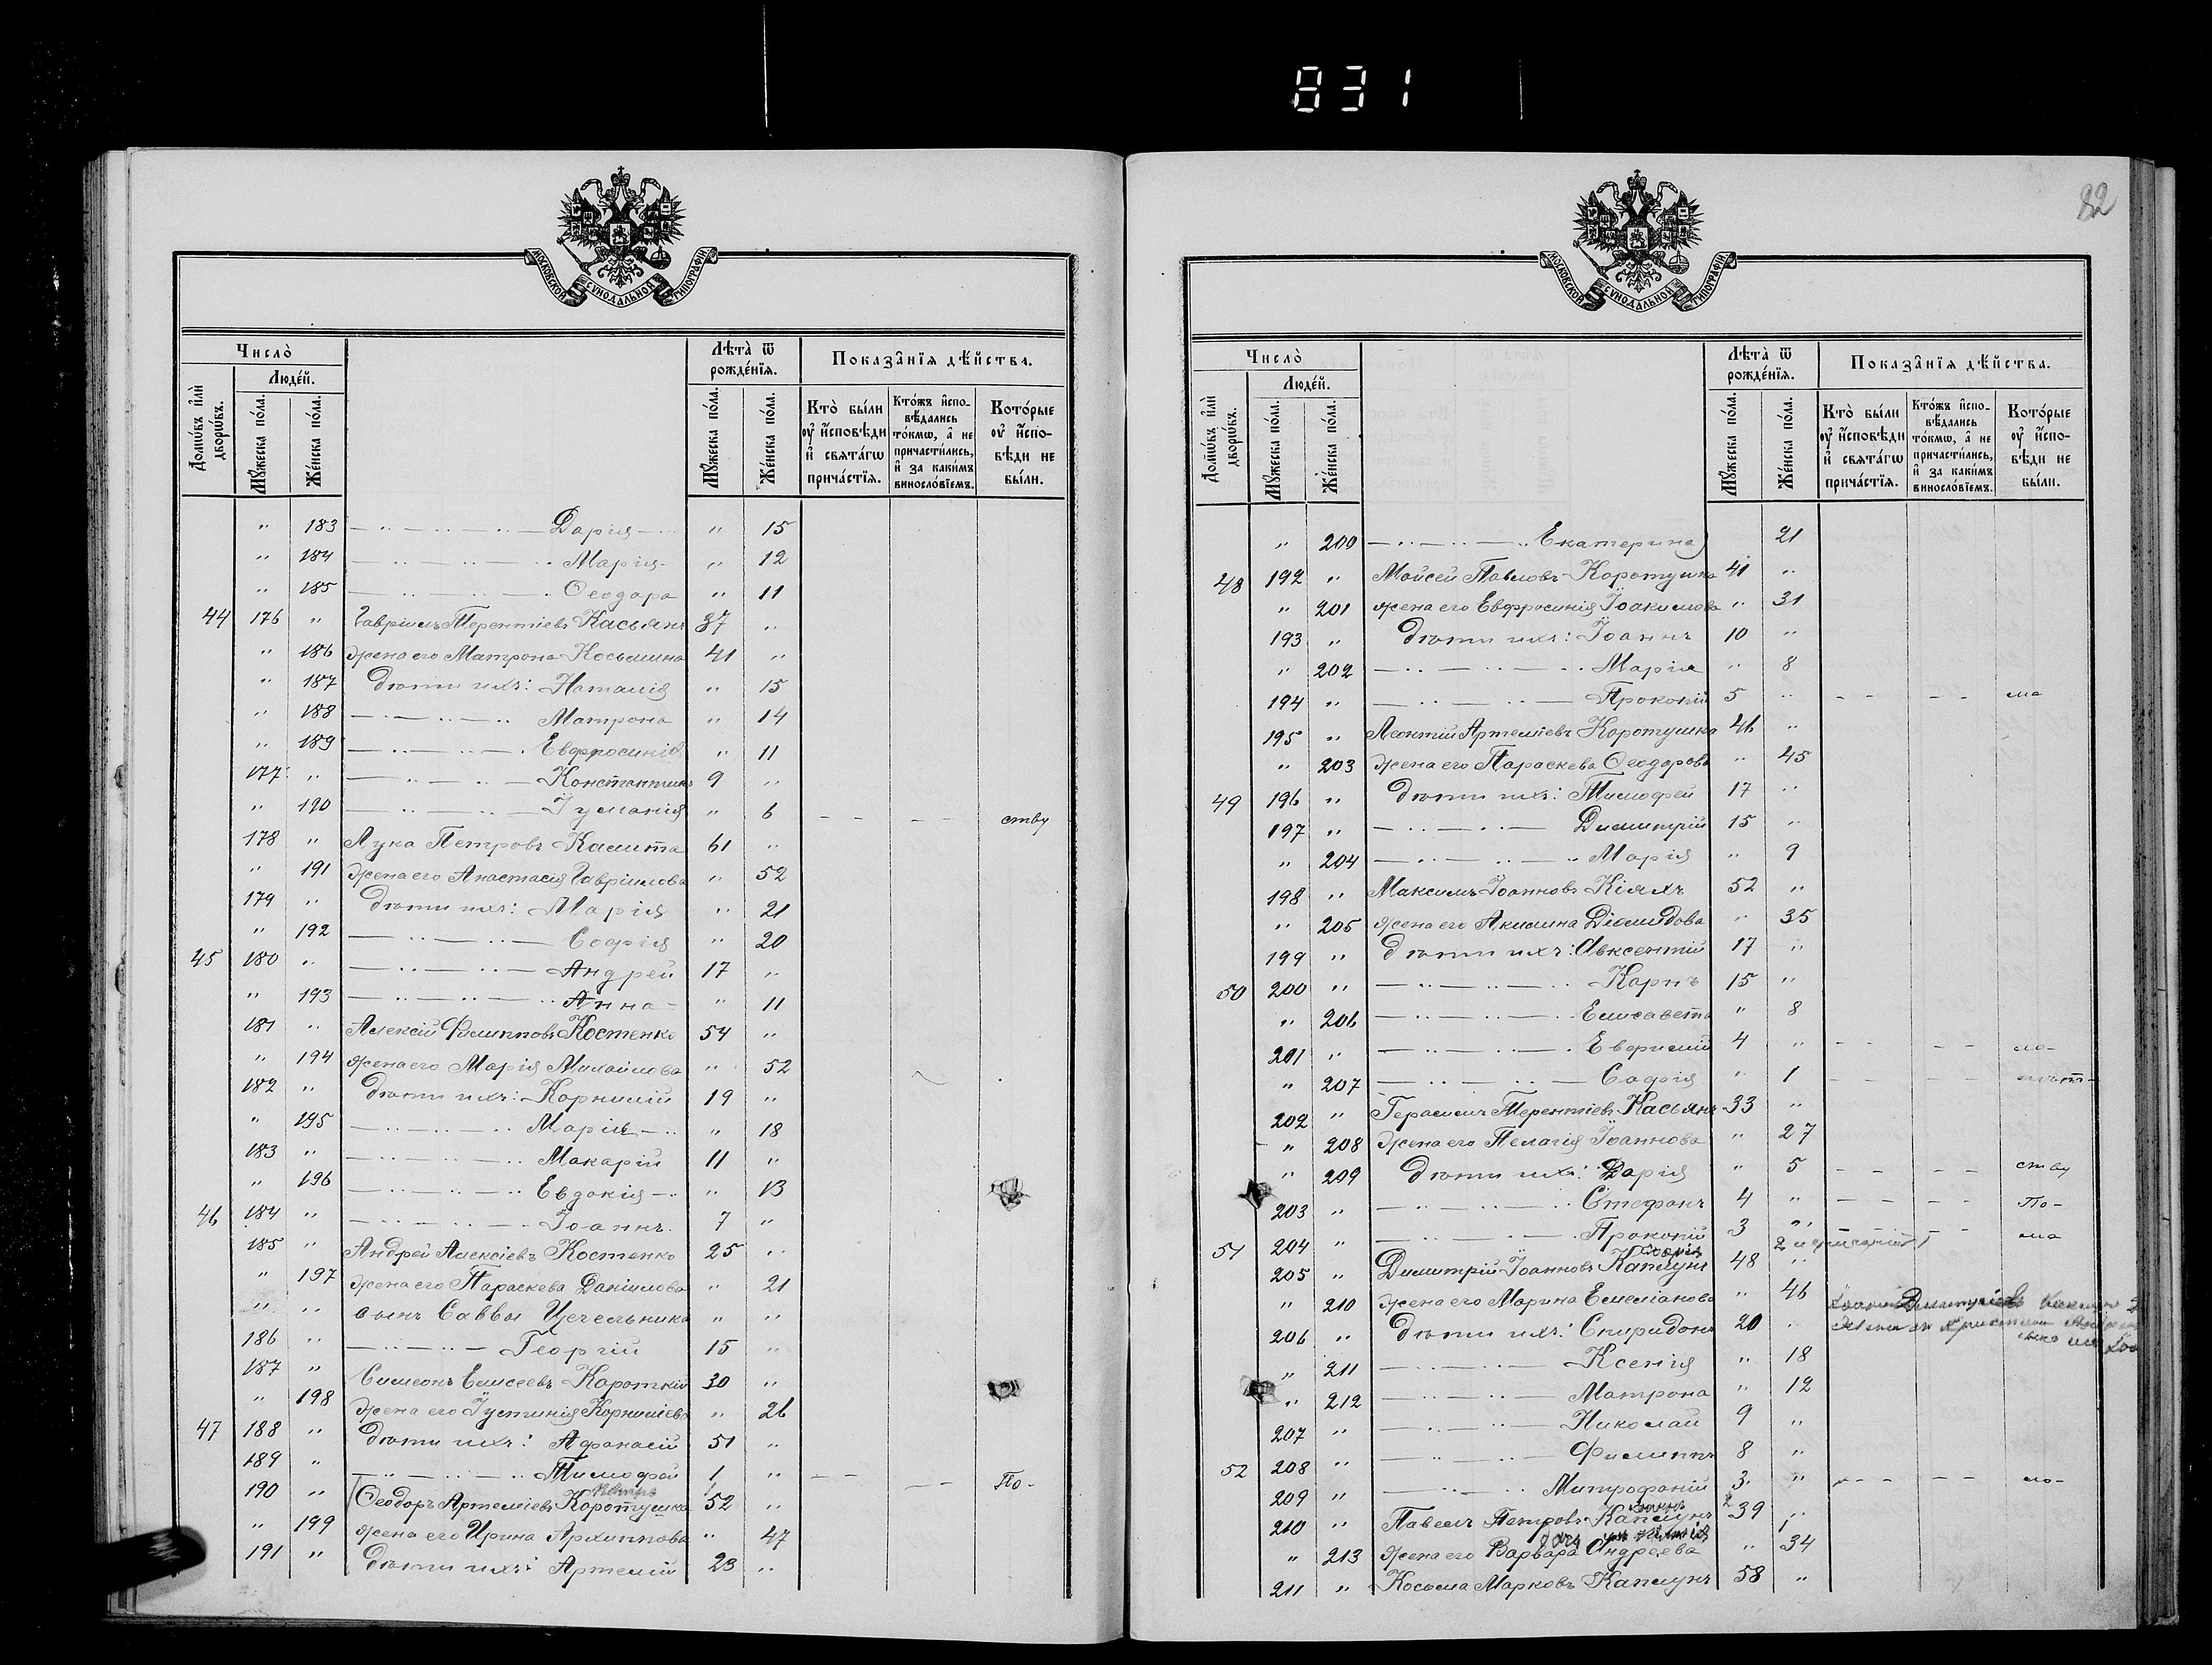 831
82
МОСКОВСКОЙ СѴНОДАЛЬНОЙ ТИПОГРАФІИ
Число̀
Людéй.
Домѡ́въ и҆лѝ дворѡ́въ.
Мꙋ́жеска по́ла.
Же́нска по́ла.
Лѣта̀ ѿ рожде́нїѧ.
Мꙋ́жеска по́ла.
Же́нска по́ла.
Показа̂нїѧ дѣ́йства.
Кто̀ бы́ли ᲂу҆ и҆́сповѣди и҆ свѧта́гѡ прича́стїѧ.
Кто́жъ и҆спо-вѣ́дались то́кмѡ, а҆ не причасти́лись, и҆ за каки́мъ винослóвїемъ.
Кото́рые ᲂу҆ и҆́спо-вѣди не бы́ли.
" 183 Дарія " 15
" 184 Марія " 12
" 185 Ѳеодора " 11
44 176 " Гавріилъ Терентіевъ Касьянъ 37 "
" 186 жена его Матрона Косьмина 41 "
" 187 дѣти ихъ: Наталія " 15
" 188 Матрона " 14
" 189 Евфросинія " 11
177 " Константинъ 9 "
" 190 Іуліанія " 6 ству
178 " Лука Петровъ Калита 61 "
" 191 жена его Анастасія Гавріилова " 52
179 " дѣти ихъ: Марія " 21
" 192 Софія " 20
45 180 " Андрей 17 "
" 193 Анна " 11
181 " Алексій Филипповъ Костенко 54 "
" 194 жена его Марія Михайлова " 52
182 " дѣти ихъ: Корнилій 19 "
" 195 Марія " 18
183 " Макарій 11 "
" 196 Евдокія " 13
46 184 " Іоаннъ 7 "
185 " Андрей Алексіевъ Костенко 25 "
" 197 жена его Параскева Даніилова " 21
" " сынъ Саввы " "
186 " Георгій 15 "
187 " Симеонъ Елисеевъ Короткій 30 "
" 198 жена его Іустинія Корниліева " 26
47 188 " дѣти ихъ: Аѳанасій 51 "
189 " Тимофей 1 " По-
190 " Ѳеодоръ Артеміевъ Коротушка 52 "
" 199 жена его Ирина Архиппова " 47
191 " дѣти ихъ: Артемій 23 "
Число̀
Людéй.
Домѡ́въ и҆лѝ дворѡ́въ.
Мꙋ́жеска по́ла.
Же́нска по́ла.
Лѣта̀ ѿ рожде́нїѧ.
Мꙋ́жеска по́ла.
Же́нска по́ла.
Показа̂нїѧ дѣ́йства.
Кто̀ бы́ли ᲂу҆ и҆́сповѣди и҆ свѧта́гѡ прича́стїѧ.
Кто́жъ и҆спо-вѣ́дались то́кмѡ, а҆ не причасти́лись, и҆ за каки́мъ винослóвїемъ.
Кото́рые ᲂу҆ и҆́спо-вѣди не бы́ли.
МОСКОВСКОЙ СѴНОДАЛЬНОЙ ТИПОГРАФІИ
" 200 Екатерина 21
48 192 " Мойсей Павловъ Коротушка 41 "
" 201 жена его Евфросинія Іоакимова " 31
193 " дѣти ихъ: Іоаннъ 10 "
" 202 Марія " 8
194 " Прокопій 5 " ма
195 " Леонтій Артеміевъ Коротушка 46 "
" 203 жена его Параскева Ѳеодорова " 45
49 196 " дѣти ихъ: Тимофей 17 "
197 " Димитрій 15 "
" 204 Марія " 9
198 " Максимъ Іоанновъ Кіяхъ 52 "
" 205 жена его Акилина Діомидова " 35
199 " дѣти ихъ: Авксентій 17 "
50 200 " Карпъ 15 "
" 206 Елисавета " 8
201 " Евфимій 4 " ло-
" 207 Софія " 1
202 " Герасимъ Терентіевъ Касьянъ 33 "
" 208 жена его Пелагія Іоаннова " 27
" 209 дѣти ихъ: Дарія " 5 ству
203 " Стефанъ 4 " По-
51 204 " Прокопій 3 " ма
205 " Димитрій Іоанновъ Каплунъ 48 "
" 210 жена его Марина Емеліанова " 46
206 " дѣти ихъ: Спиридонъ 20 "
" 211 Ксенія " 18
" 212 Матрона " 12
207 " Николай 9 "
52 208 " Филиппъ 8 "
209 " Митрофаній 3 " ло-
210 " Павелъ Петровъ Каплунъ 39 "
" 213 жена его Варвара Андреева " 34
211 " Косьма Марковъ Каплунъ 58 "